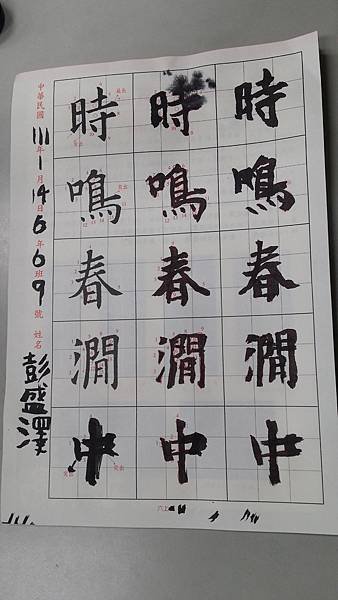 時 時 時
鳴 鳴 鳴
春 春 春
澗 澗 澗
中 中 中
中華民國 111 年 1 月 14 日 6 年 6 班 9 號 姓名 彭盛澤
六上